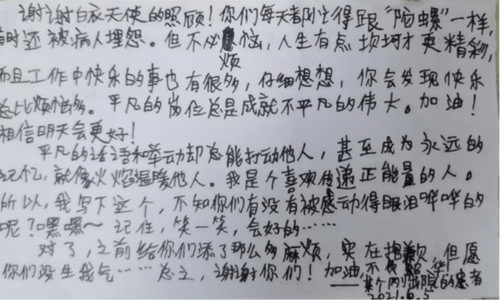 谢谢白衣天使的照顾！你们每天都忙得跟“陀螺”一样，
有时还被病人埋怨。但不必烦恼，人生有点坎坷才更精彩，
而且工作中快乐的事也有很多，仔细想想，你会发现快乐
总比烦恼多。平凡的岗位总是成就不平凡的伟大。加油！
相信明天会更好！
平凡的话语和举动却总能打动他人，甚至成为永远的
记忆，就像火焰温暖他人。我是个喜欢传递正能量的人。
所以，我写下这个，不知你们有没有被感动得眼泪哗哗的
呢？嘿嘿~ 记住，笑一笑，会好的……
对了，之前给你们添了那么多麻烦，实在抱歉，但愿
你们没生我气……总之，谢谢你们！加油
某个刚出院的患者
2021.6.5